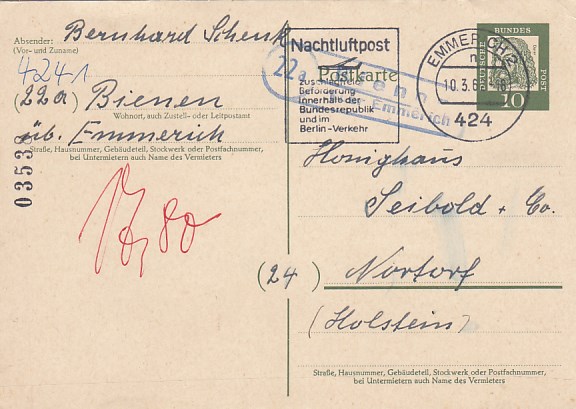 Absender: Bernhard Schenk
(Vor- und Zuname)
4241
(22a) Bienen
Wohnort, auch Zustell- oder Leitpostamt
üb. Emmerich
Straße, Hausnummer, Gebäudeteil, Stockwerk oder Postfachnummer,
bei Untermietern auch Name des Vermieters
0353
Nachtluftpost
zuschlagfreie
Beförderung
innerhalb der
Bundesrepublik
und im
Berlin-Verkehr
Postkarte
22a
Emmerich
EMMERICH
10.3.6
424
DEUTSCHE
BUNDES
POST
10
Honighaus
Seibold + Co.
(24) Nortorf
(Holstein)
Straße, Hausnummer, Gebäudeteil, Stockwerk oder Postfachnummer,
bei Untermietern auch Name des Vermieters